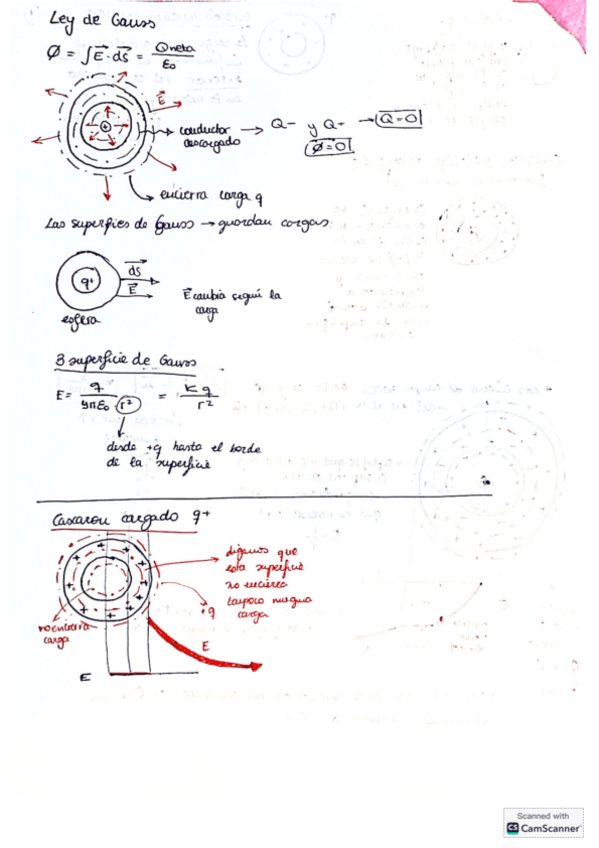 Ley de Gauss
Ø = ∫E⃗·dS⃗ = Qneta / ε0
E⃗
conductor descargado → Q- y Q+ → Q=0
Ø=0
encierra carga q
Las superfies de Gauss → guardan cargas
q+
dS⃗
E⃗
esfera
E⃗ cambia según la
carga
3 superficie de Gauss
E = q / 4πε0·r² = K q / r²
desde +q hasta el borde
di la superficie
Cascarou cargado q+
digamos que
esta superficie
no encierra
tampoco ninguna
carga
+q
no encierra
carga
E
E
Scanned with
CS CamScanner